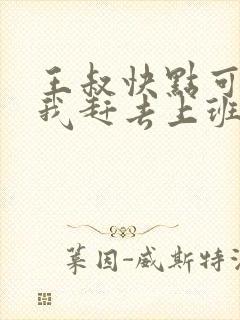 王叔快點可
我赶去上班
葉因-威斯特法